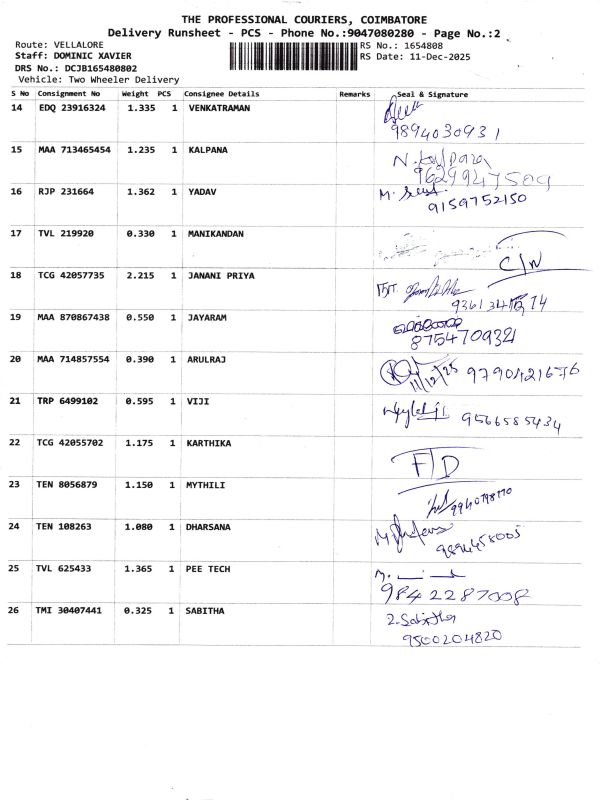 THE PROFESSIONAL COURIERS, COIMBATORE
Delivery Runsheet - PCS - Phone No.:9047080280 - Page No.:2
Route: VELLALORE RS No.: 1654808
Staff: DOMINIC XAVIER RS Date: 11-Dec-2025
DRS No.: DCJB165480802
Vehicle: Two Wheeler Delivery
S No Consignment No Weight PCS Consignee Details Remarks Seal & Signature
14 EDQ 23916324 1.335 1 VENKATRAMAN
9894030931
15 MAA 713465454 1.235 1 KALPANA
N.
9629947509
16 RJP 231664 1.362 1 YADAV M.
9159752150
17 TVL 219920 0.330 1 MANIKANDAN
C/N
18 TCG 42057735 2.215 1 JANANI PRIYA
19 MAA 870867438 0.550 1 JAYARAM
8754709321
20 MAA 714857554 0.390 1 ARULRAJ
11/12/25 9790421676
21 TRP 6499102 0.595 1 VIJI
9566585434
22 TCG 42055702 1.175 1 KARTHIKA
F/D
23 TEN 8056879 1.150 1 MYTHILI
24 TEN 108263 1.080 1 DHARSANA
9894458005
25 TVL 625433 1.365 1 PEE TECH
9842287008
26 TMI 30407441 0.325 1 SABITHA
Z.Sabitha
9500204820